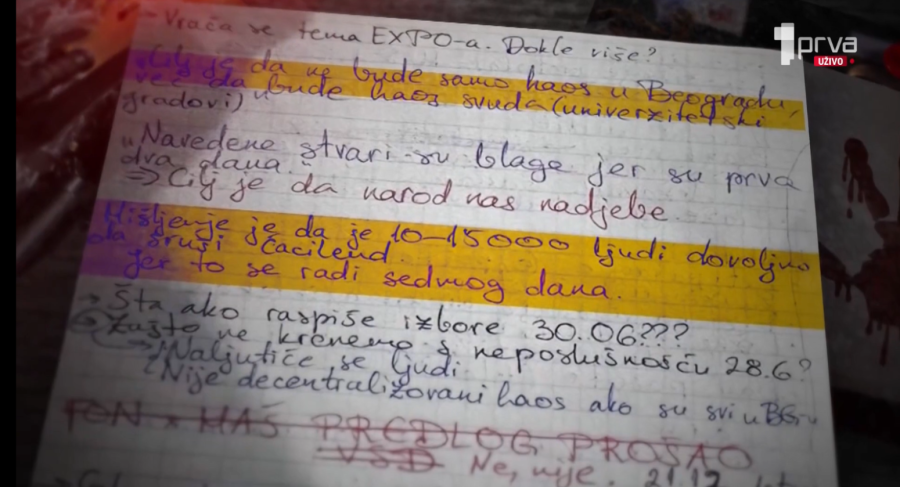 → Vraća se tema EXPO-a. Dokle više?
"Cilj je da ne bude samo haos u Beogradu,
već da bude haos svuda (univerzitetski
gradovi)"
"Navedene stvari su blage jer su prva
dva dana"
⇒ Cilj je da narod nas nadjebe.
Mišljenje je da je 10–15000 ljudi dovoljno
da sruši Ćacilend
jer to se radi sedmog dana.
→ Šta ako raspiše izbore 30.06???
→ Zašto ne krenemo s neposlušnošću 28.6?
→ Naljutiće se ljudi
Nije decentralizovani haos ako su svi u BG-u
PREDLOG PROŠAO
Ne, nije. 21.17
1prva
UŽIVO